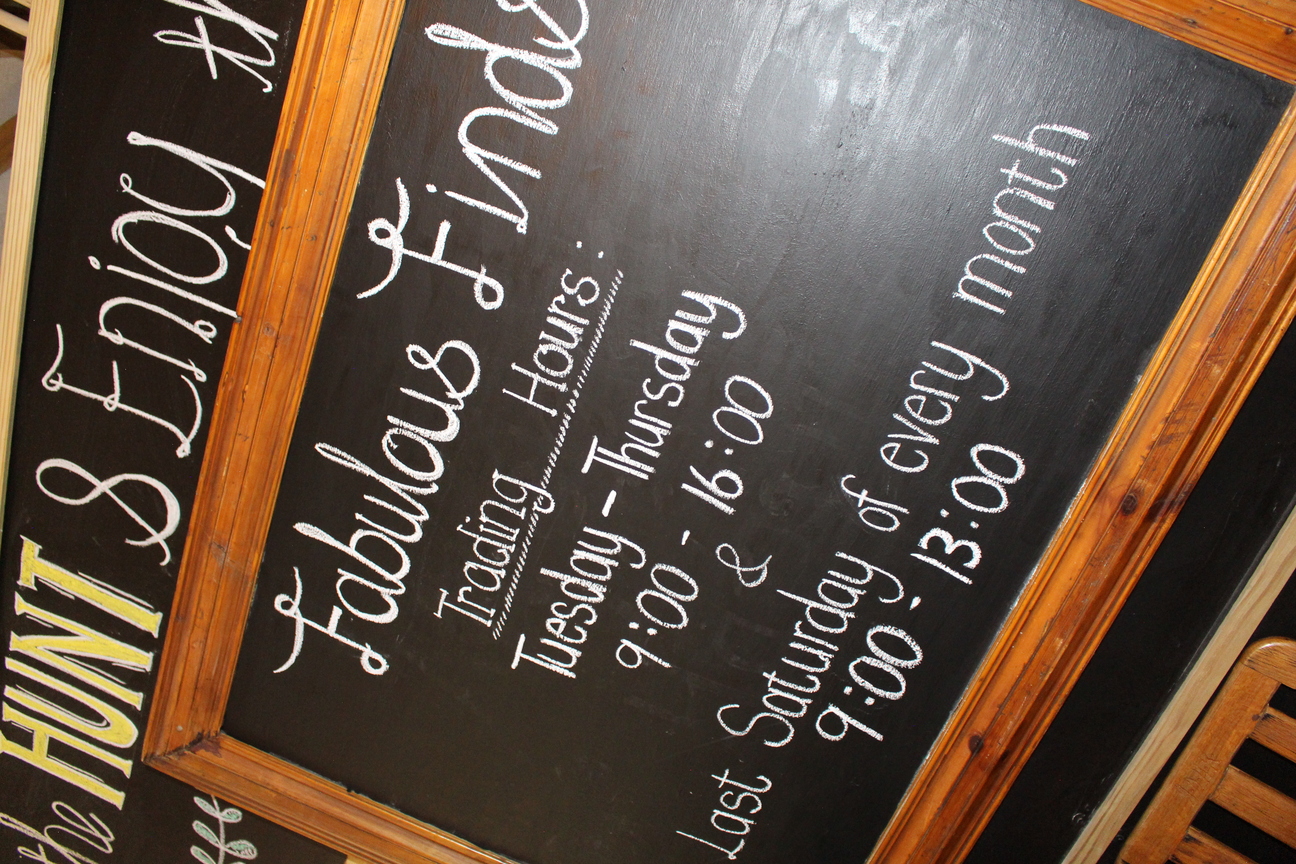 the HUNT & Enjoy th
Fabulous Finds
Trading Hours:
Tuesday - Thursday
9:00 - 16:00
&
Last Saturday of every month
9:00 - 13:00